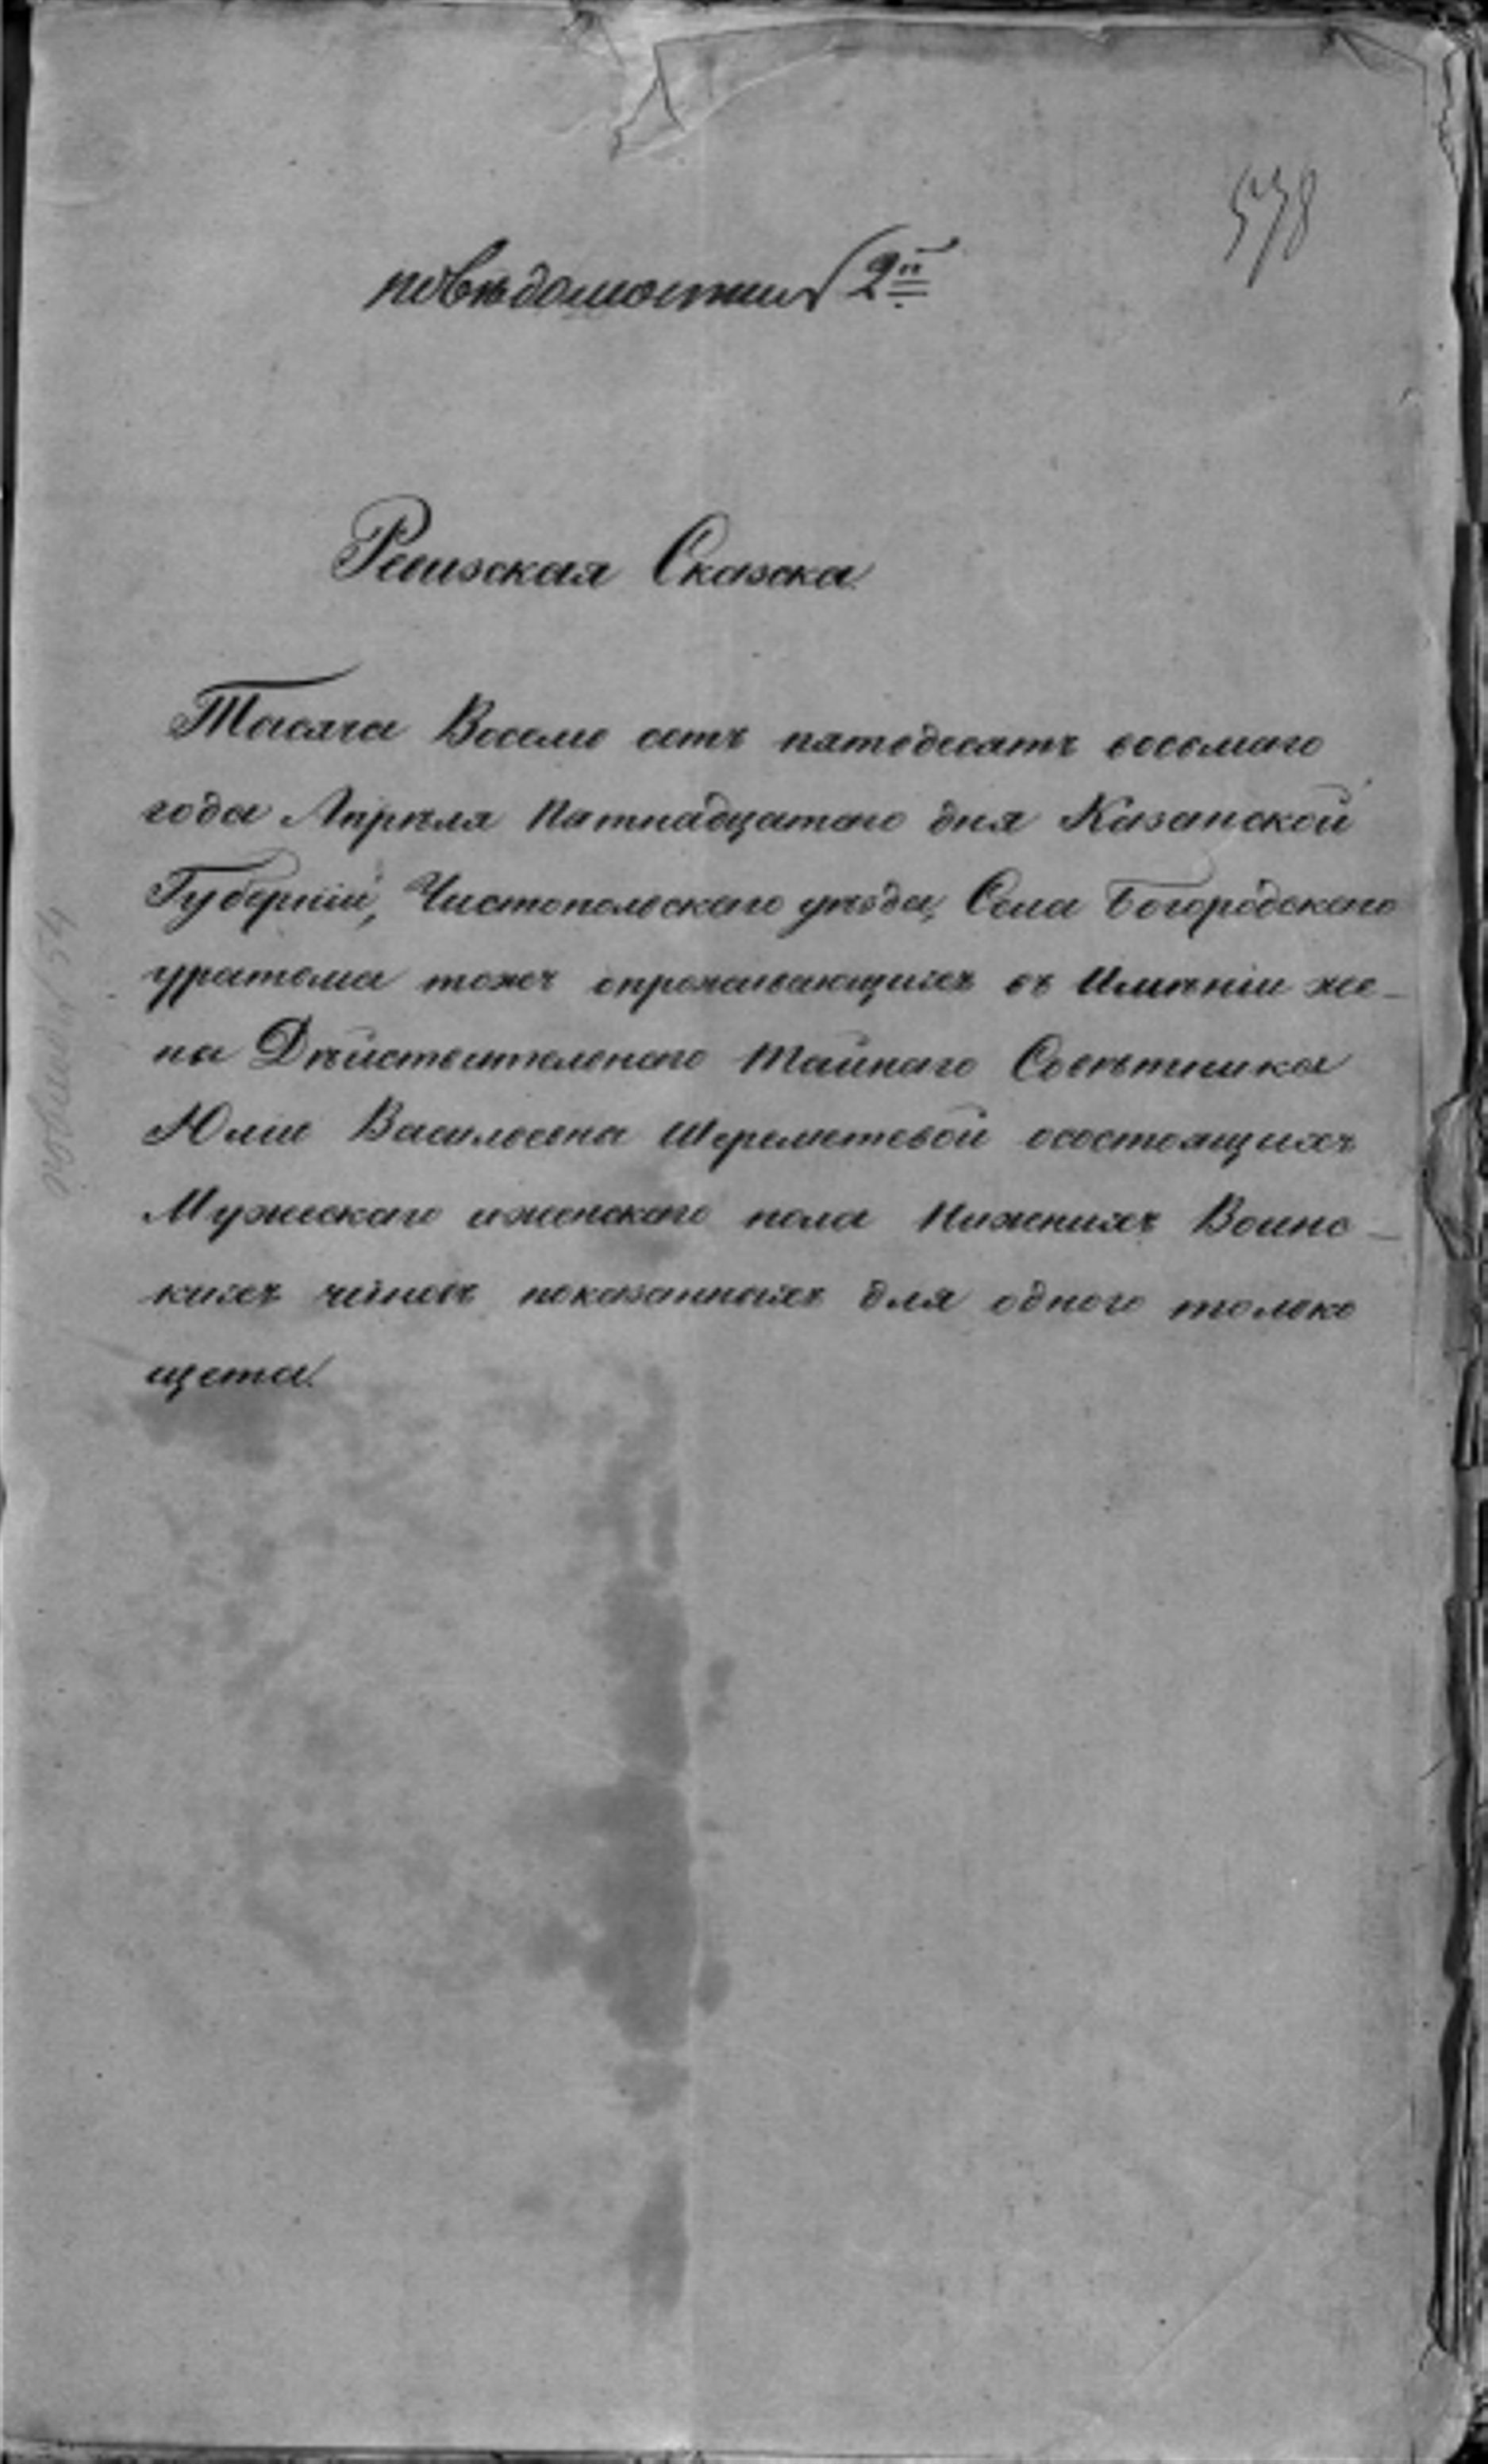 578
повѣдомости 2й
Ревизская Сказка
Тысяча Восемь сотъ пятьдесятъ восьмаго
года Апрѣля Пятнадцатаго дня Казанской
Губерніи, Чистопольскаго уѣзда, Села Богородскаго
тожъ опроживающихъ въ Имѣніи же-
ны Дѣйствительнаго Тайнаго Совѣтника
Юліи Васильевны Шереметевой осостоящихъ
Мужескаго иженскаго пола Нижнихъ Воинс-
кихъ чиновъ показанныхъ для одного только
щета.